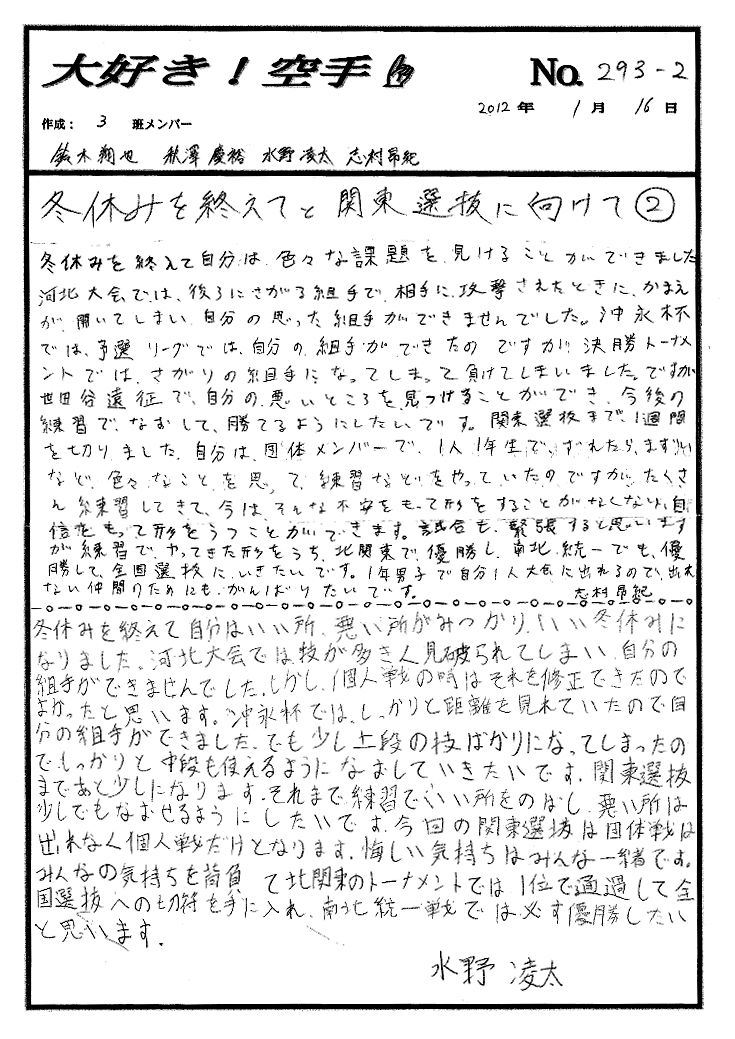 大好き！空手
No. 293-2
2012 年 1 月 16 日
作成： 3 班メンバー
鈴木 翔也 秋澤 慶裕 水野 凌太 志村 昂紀
冬休みを終えてと関東選抜に向けて②
冬休みを終えて自分は、色々な課題を見けることができました
河北大会では、後ろにさがる組手で、相手に攻撃されたときに、かまえ
が開いてしまい自分の思った組手ができませんでした。沖永杯
では、予選リーグでは、自分の組手ができたのですが決勝トーナメ
ントでは、さがりの組手になってしまって負けてしまいました。ですが
世田谷遠征で、自分の悪いところを見つけることができ、今後の
練習で、なおして、勝てるようにしたいです。関東選抜まで、1週間
を切りました。自分は、団体メンバーで、1人1年生で、ずれたら、まずい
など、色々なことを思って練習などをやっていたのですが、たくさ
ん練習してきて、今は、そんな不安をもって形をすることがなくなり、自
信をもって形をうつことができます。試合も、緊張すると思います
が練習で、やってきた形をうち、北関東で、優勝し、南北統一でも、優
勝して、全国選抜に、いきたいです。1年男子で自分1人大会に出れるので、出れ
ない仲間のためにも、がんばりたいです。 志村昂紀
冬休みを終えて自分はいい所、悪い所がみつかり、いい冬休みに
なりました。河北大会では技が多きく見破られてしまい、自分の
組手ができませんでした。しかし、個人戦の時はそれを修正できたので
よかったと思います。沖永杯では、しっかりと距離を見れていたので自
分の組手ができました。でも少し上段の技ばかりになってしまったの
でしっかりと中段も使えるようになおしていきたいです。関東選抜
まであと少しになります。それまで練習でいい所をのばし、悪い所は
少しでもなおせるようにしたいです。今回の関東選抜は団体戦は
出れなく個人戦だけとなります。悔しい気持ちはみんな一緒です。
みんなの気持ちを荷負って北関東のトーナメントでは1位で通過して全
国選抜への切符を手に入れ、南北統一戦では必ず優勝したい
と思います。
水野 凌太